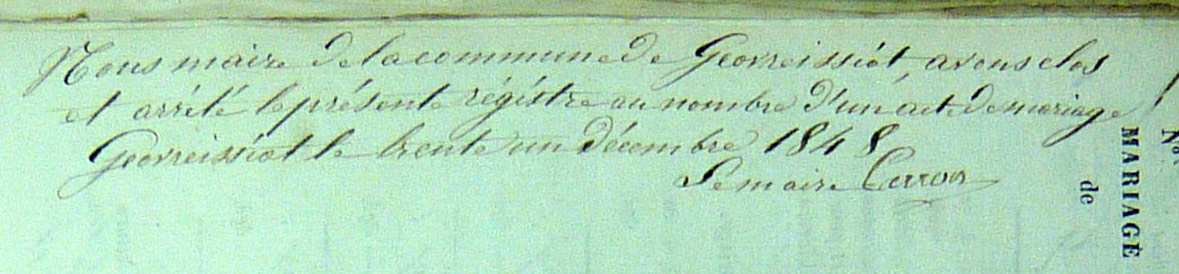 Nous maire de la commune de Georreissiat, avons clos
et arrêté le présente régistre au nombre d'un acte de mariage
Georreissiat le trente un décembre 1848
Le maire Carron
No.
MARIAGE
de